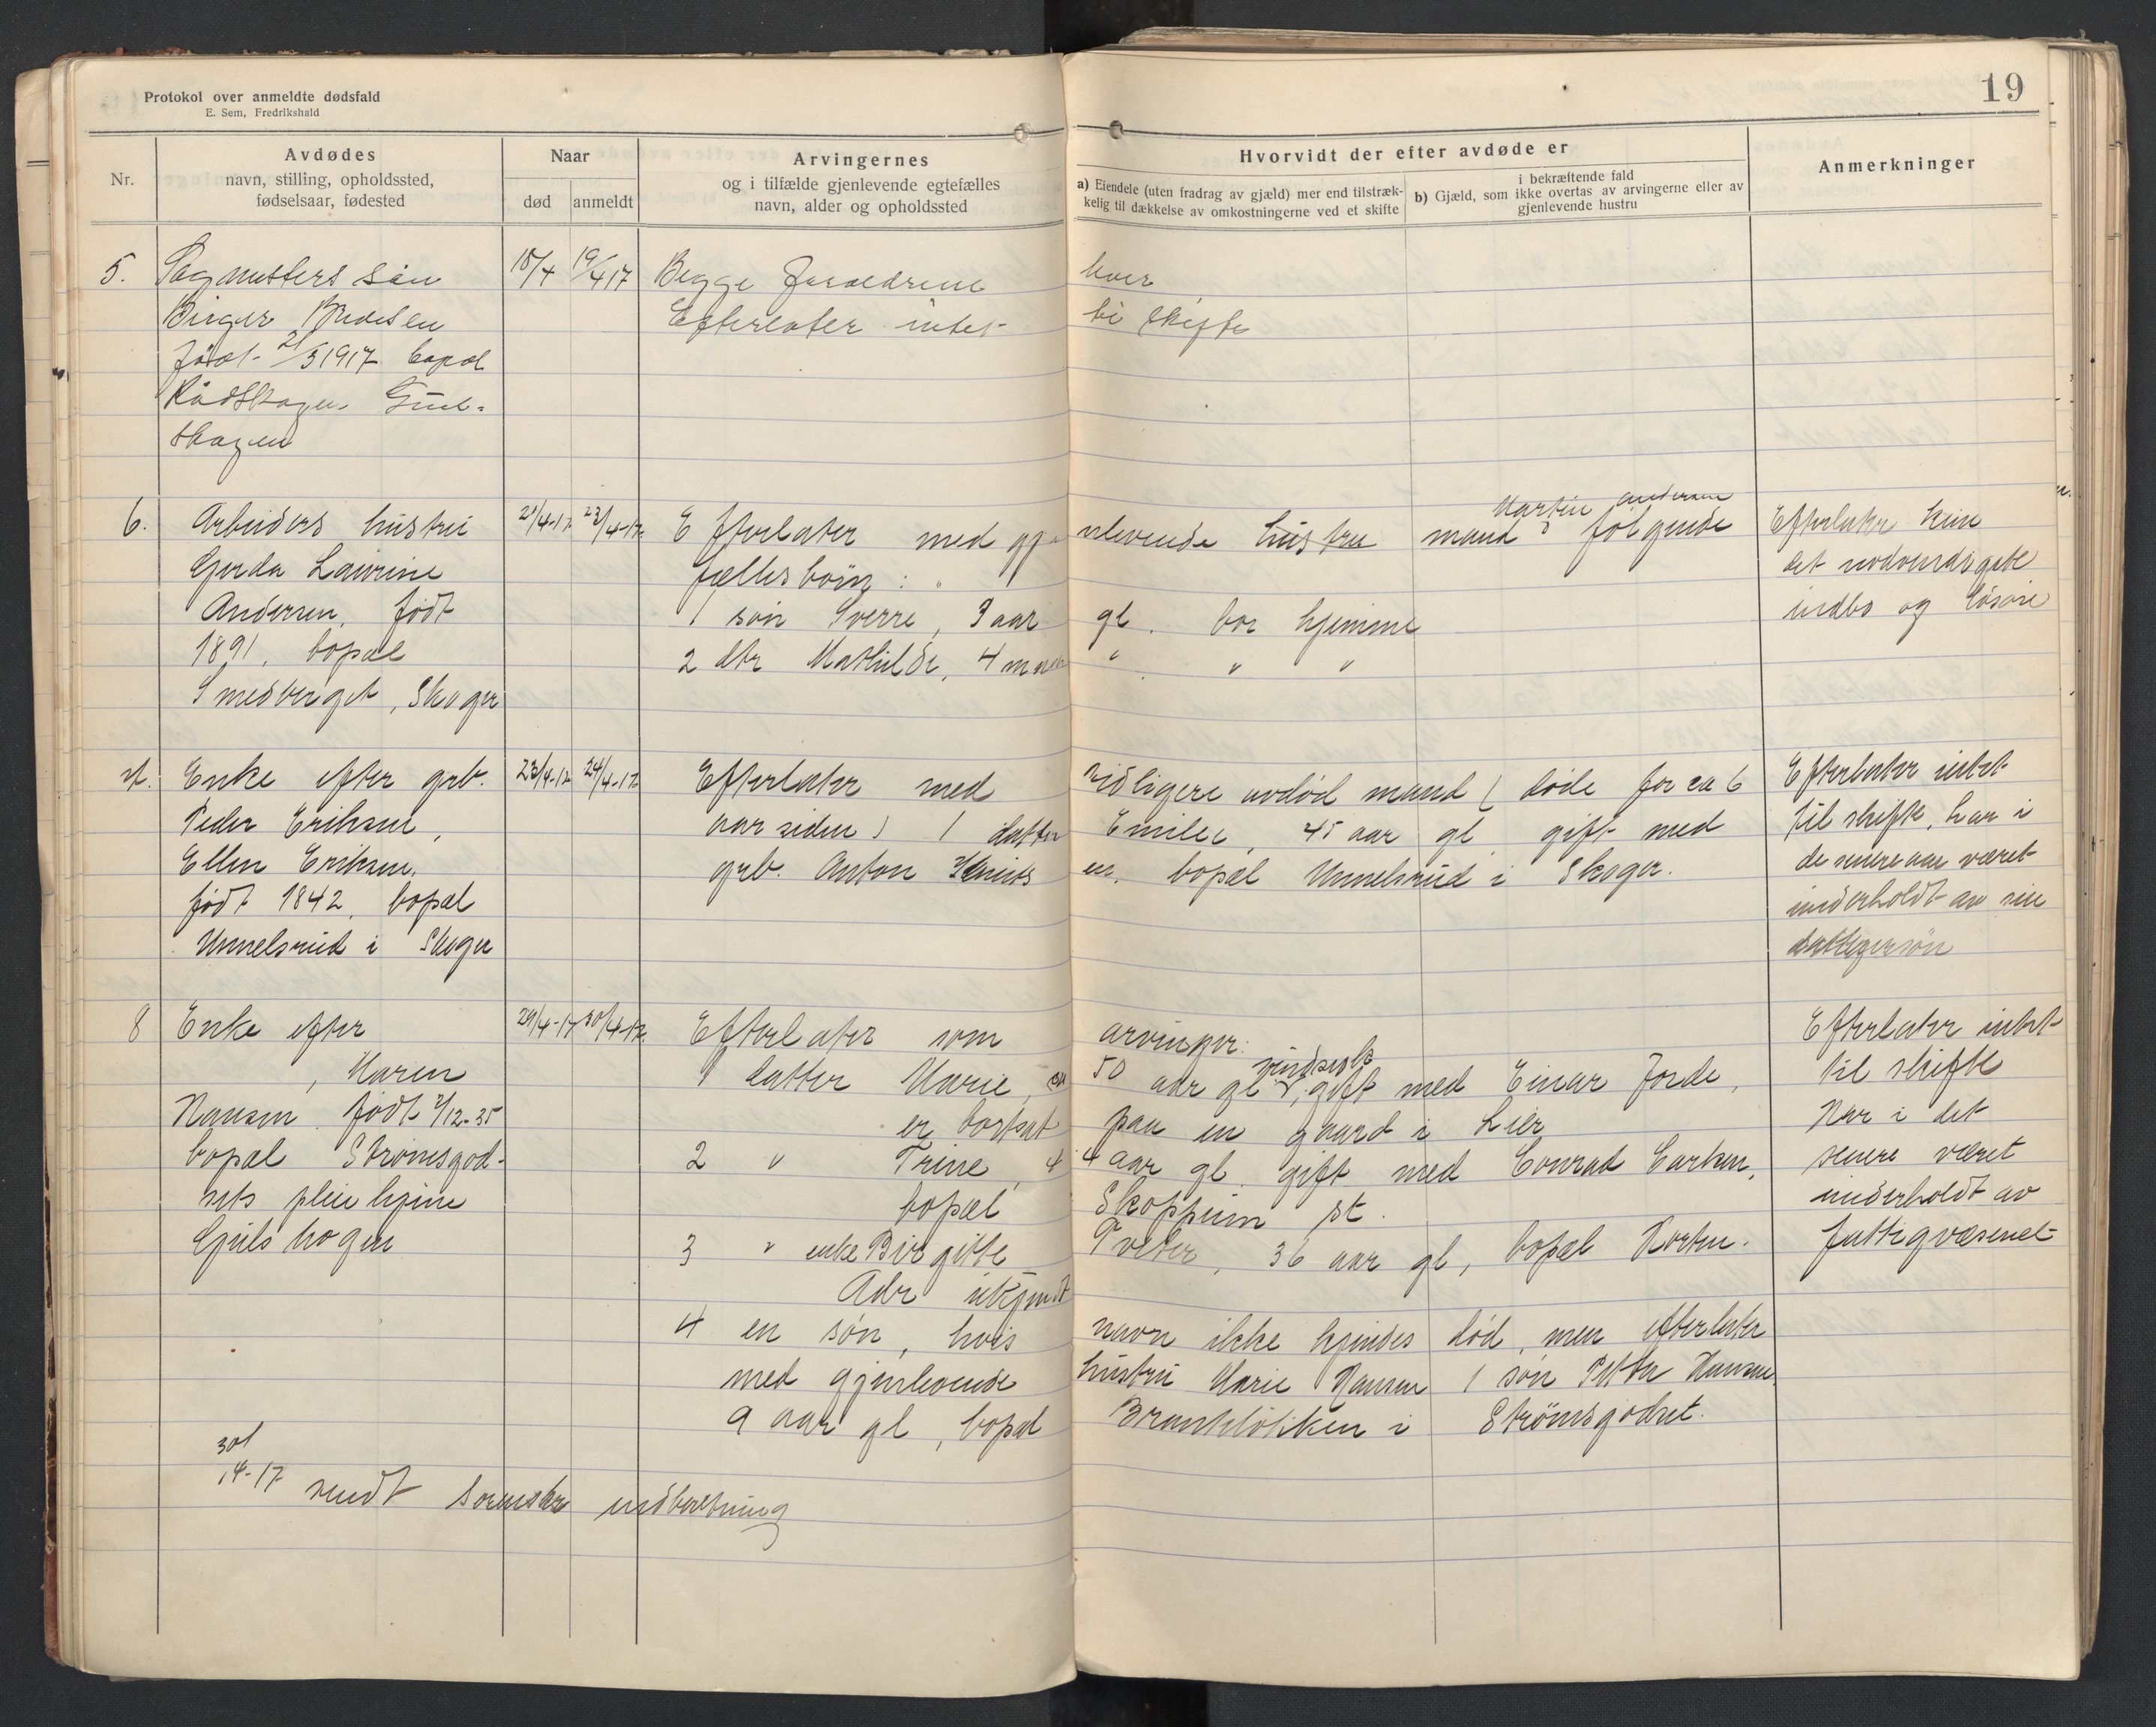 Protokol over anmeldte dødsfald
E. Sem, Fredrikshald
19
Nr.
Avdødes
navn, stilling, opholdssted,
fødselsaar, fødested
Naar
død
anmeldt
Arvingernes
og i tilfælde gjenlevende egtefælles
navn, alder og opholdssted
Hvorvidt der efter avdøde er
a) Eiendele (uten fradrag av gjæld) mer end tilstræk-
kelig til dækkelse av omkostningerne ved et skifte
i bekræftende fald
b) Gjæld, som ikke overtas av arvingerne eller av
gjenlevende hustru
Anmerkninger
5.
søn
Birger
født 2/3 1917 bopæl
skogen
18/4
19/4 17
Begge Forældrene
Efterlater intet
skifte
6.
Arbeiders hustru
Gerda Laurine
Andersen, født
1891, bopæl
Smedberget, Skoger
21/4-17
23/4-17
Efterlater med gjenlevende hustru mand Martin Andersen følgende
fællesbørn:
1 søn Sverre, 3 aar gl. bor hjemme
2 dtr Mathilde, 4 " " "
Efterlater kun
det nødvendigste
indbo og løsøre
7.
Enke efter grb.
Peder Eriksen,
Ellen Eriksen,
født 1842, bopæl
Unnelsrud i Skoger
23/4-17
24/4-17
Efterlater med tidligere avdød mand (døde for ca 6
aar siden) 1 datter Emilie, 45 aar gl gift med
grb. Anton Knudsen, bopæl Unnelsrud i Skoger.
Efterlater intet
til skifte, har i
de senere aar været
underholdt av sin
dattersøn
8
Enke efter
, Maren
Hansen født 2/12-35
bopæl Strømsgod-
sets pleiehjem
Gulskogen
29/4-17
30/4-17
Efterlater som arvinger:
1 datter Marie, 50 aar gl sindssyk, gift med Einar Jorde,
er bortsat paa en gaard i Lier
2 " Trine, 44 aar gl. gift med Conrad Carlsen,
bopæl Skoppum st.
3 " enke Birgitte Tveter, 36 aar gl, bopæl Horten.
Adr ukjendt
4 en søn, hvis navn ikke kjendes død, men efterlater
med gjenlevende hustru Marie Hansen 1 søn Petter Hansen
9 aar gl, bopæl Brandeløkken i Strømsgodset.
Efterlater intet
til skifte
Har i det
senere været
underholdt av
fattigvæsenet
30/4-17 sendt sorenskr indberetning